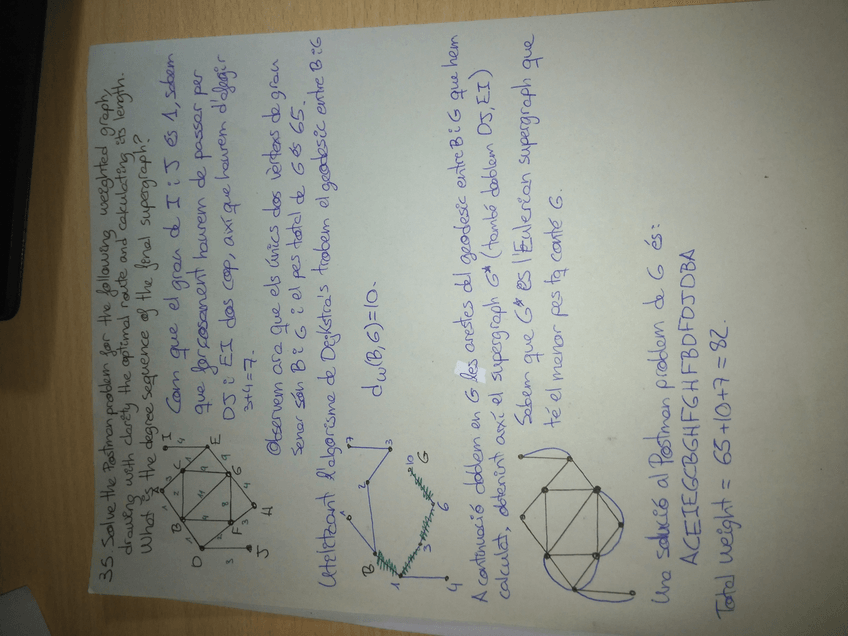 35 Solve the Postman problem for the following weighted graph,
drawing with clarity the optimal route and calculating its length.
What is the degree sequence of the final supergraph?
Com que el grau de I i J és 1, sabem
que forçosament haurem de passar per
DJ i EI dos cop, així que haurem d'afegir
3+4=7.
Observem ara que els únics dos vèrtexs de grau
senar són B i G i el pes total de G és 65.
Utilitzant l'algorisme de Dijkstra's trobem el geodesic entre B i G
dw(B,G)=10.
A continuació doblem en G les arestes del geodesic entre B i G que hem
calculat, obtenint així el supergraph G* (també doblem DJ, EI)
Sabem que G* és l'Eulerian supergraph que
té el menor pes tq conté G.
Una solució al Postman problem de G és:
ACEIEGCBGHFGHFBDFDJDBA
Total weight = 65+10+7=82.